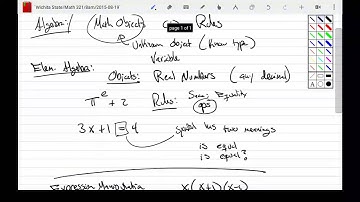 Wichita State/Math 321/8am/2015-08-19
Algebra: Math Objects and Rules
page 1 of 1
Unknown object (know type)
Variable
Elem. Algebra:
Objects: Real Numbers (any decimal)
π^e + 2 Rules: Same: Equality
ops
3x + 1 = 4 symbol has two meanings
is equal
is equal?
Expression Manipulation x(x+1)(x-1)